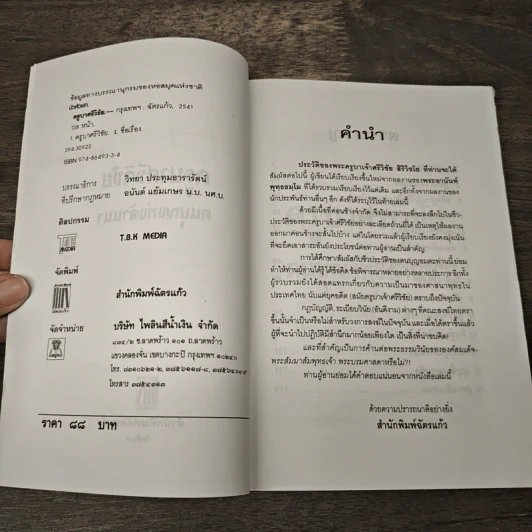 ข้อมูลทางบรรณานุกรมของหอสมุดแห่งชาติ
ครูบาศรีวิชัย.-- กรุงเทพฯ : ฉัตรแก้ว, 2541
หน้า
1. ครูบาศรีวิชัย. I. ชื่อเรื่อง.
294.30922
ISBN 974-86493-3-4
บรรณาธิการ วิทยา ประทุมธารารัตน์
ที่ปรึกษากฎหมาย อนันต์ แย้มเกษร น.บ. นศ.บ.
ศิลปกรรม
T.B.K MEDIA
จัดพิมพ์
สำนักพิมพ์ฉัตรแก้ว
จัดจำหน่าย
บริษัท ไพลินสีน้ำเงิน จำกัด
ซ.ลาดพร้าว ๑๐๑ ถ.ลาดพร้าว
แขวงคลองจั่น เขตบางกะปิ กรุงเทพฯ ๑๐๒๔๐
โทรสาร ๓๗๕๔๓๑๓
ราคา ๘๘ บาท
คำนำ
ประวัติของพระครูบาเจ้าศรีวิชัย สิริวิชโย ที่ท่านจะได้
สัมผัสต่อไปนี้ ผู้เขียนได้เรียบเรียงขึ้นใหม่จากผลงานของพระอานันท์
พุทฺธธมฺโม ที่ได้รวบรวมเรียบเรียงไว้แต่เดิม และอีกทั้งจากผลงานของ
นักประพันธ์ท่านอื่นๆ อีก ดังที่ได้ระบุไว้ในท้ายเล่มนี้
ด้วยมีเนื้อที่ค่อนข้างจำกัด จึงไม่สามารถที่จะลงลึกไปในชีว-
ประวัติของพระครูบาเจ้าศรีวิชัยอย่างละเอียดถ้วนถี่ได้ เป็นเหตุให้ผลงาน
ออกมาค่อนข้างจะสั้นไปบ้าง แต่ในโดยรวมแล้วผู้เรียบเรียงยังคงมุ่งเน้น
ที่จะยึดเอาสาระอันยังประโยชน์ต่อท่านผู้อ่านเป็นสำคัญ
การได้ศึกษาสัมผัสกับชีวประวัติของตนบุญอมตะท่านนี้ ย่อม
ทำให้ท่านผู้อ่านได้รู้ ได้ข้อคิด ข้อพิจารณาหลายอย่างหลายประการ อีกทั้ง
ผู้รวบรวมยังได้สอดแทรกเกี่ยวกับความเป็นมาของศาสนาพุทธใน
ประเทศไทย นับแต่ยุคอดีต (สมัยครูบาศรีวิชัย) ตราบถึงปัจจุบัน
กฎบัญญัติ, ระเบียบวินัย (อันดีงาม) ต่างๆ ที่คณะสงฆ์ไทยตรา
ขึ้นนั้นจำเป็นหรือไม่สำหรับวงการสงฆ์ในปัจจุบัน และเมื่อได้ตราขึ้นแล้ว
ผู้ที่จะนำไปปฏิบัติมีสำนึกมากน้อยเพียงใด เป็นสิ่งที่น่าขบคิด!
และที่สำคัญเป็นการค้านต่อพระธรรมวินัยขององค์สมเด็จ-
พระสัมมาสัมพุทธเจ้า พระบรมศาสดาหรือไม่?!
ท่านผู้อ่านย่อมได้คำตอบแน่นอนจากหนังสือเล่มนี้
ด้วยความปรารถนาดีอย่างยิ่ง
สำนักพิมพ์ฉัตรแก้ว